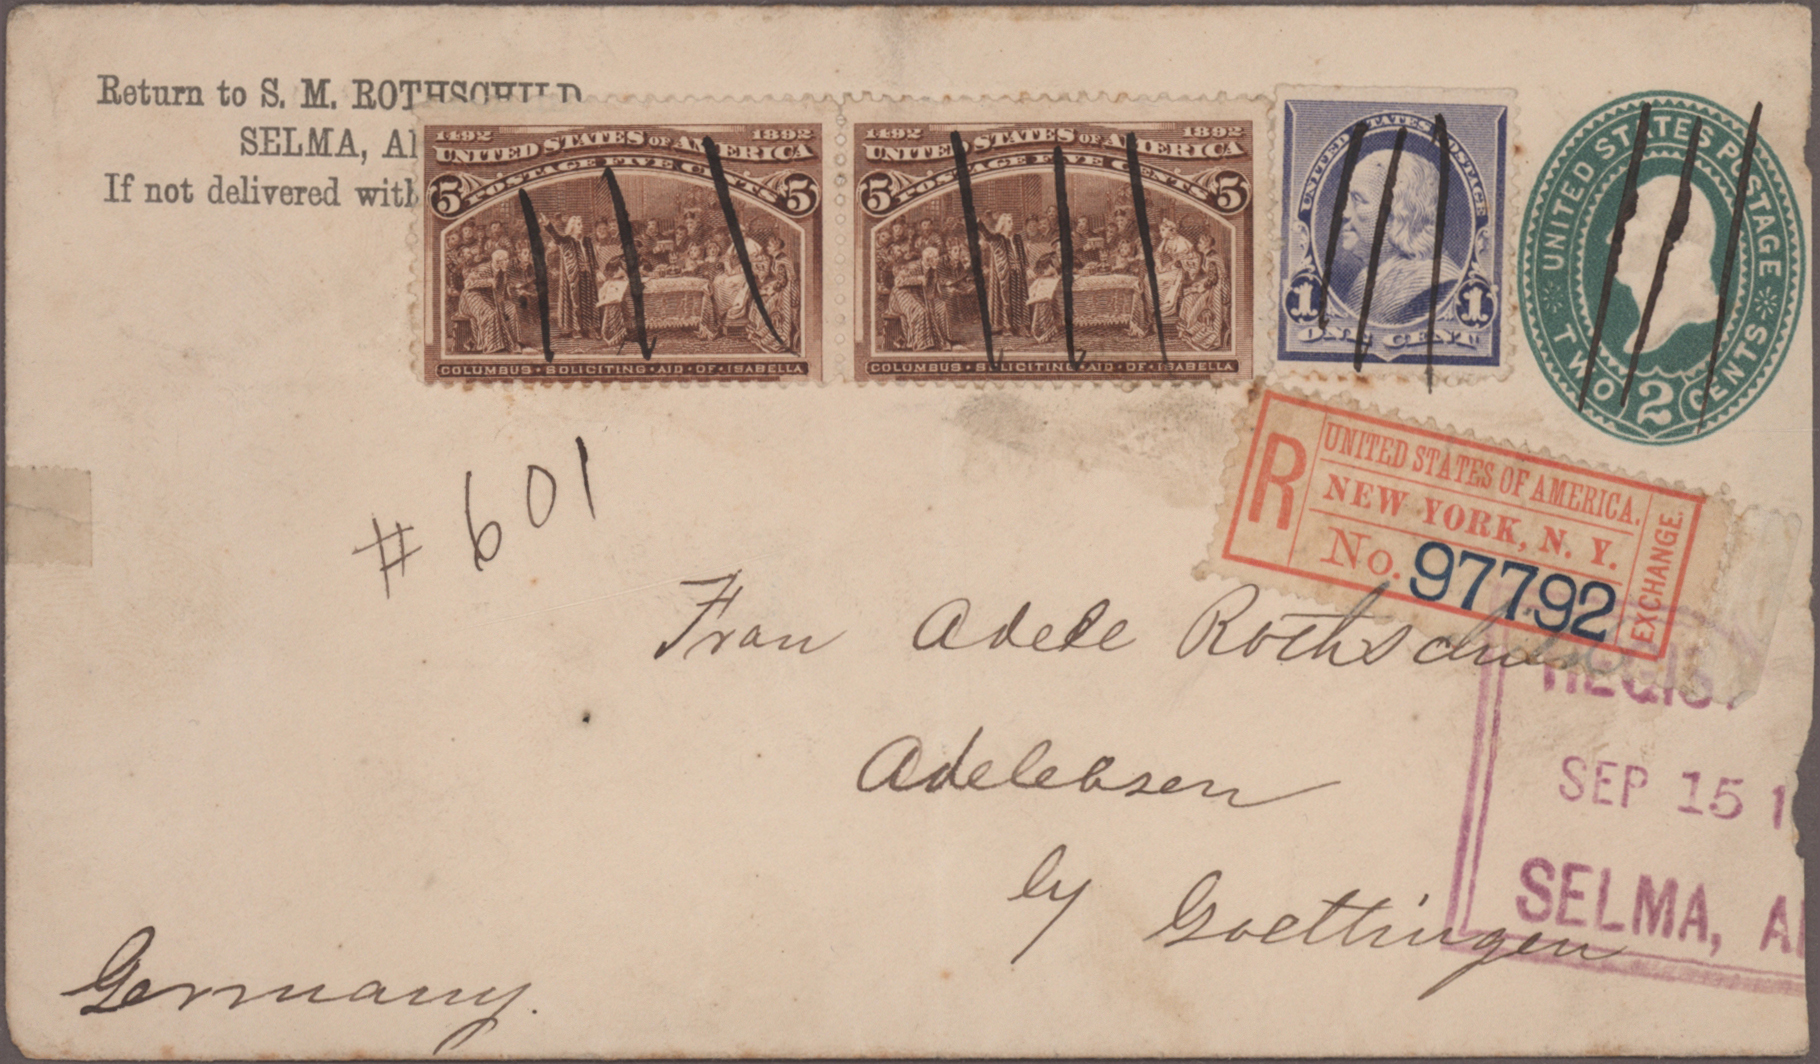 Return to S. M. ROTHSCHILD
SELMA, Al
If not delivered with
1492 1892
UNITED STATES OF AMERICA
POSTAGE FIVE CENTS
5 5
COLUMBUS · SOLICITING · AID · OF · ISABELLA
1492 1892
UNITED STATES OF AMERICA
POSTAGE FIVE CENTS
5 5
COLUMBUS · SOLICITING · AID · OF · ISABELLA
UNITED STATES POSTAGE
1 1
ONE CENT
UNITED STATES POSTAGE
TWO 2 CENTS
R
UNITED STATES OF AMERICA.
NEW YORK, N. Y.
No. 97792
EXCHANGE.
# 601
Frau Adele Rothschi
Adelebsen
by Goettingen
Germany.
REGIS
SEP 15 1
SELMA, A